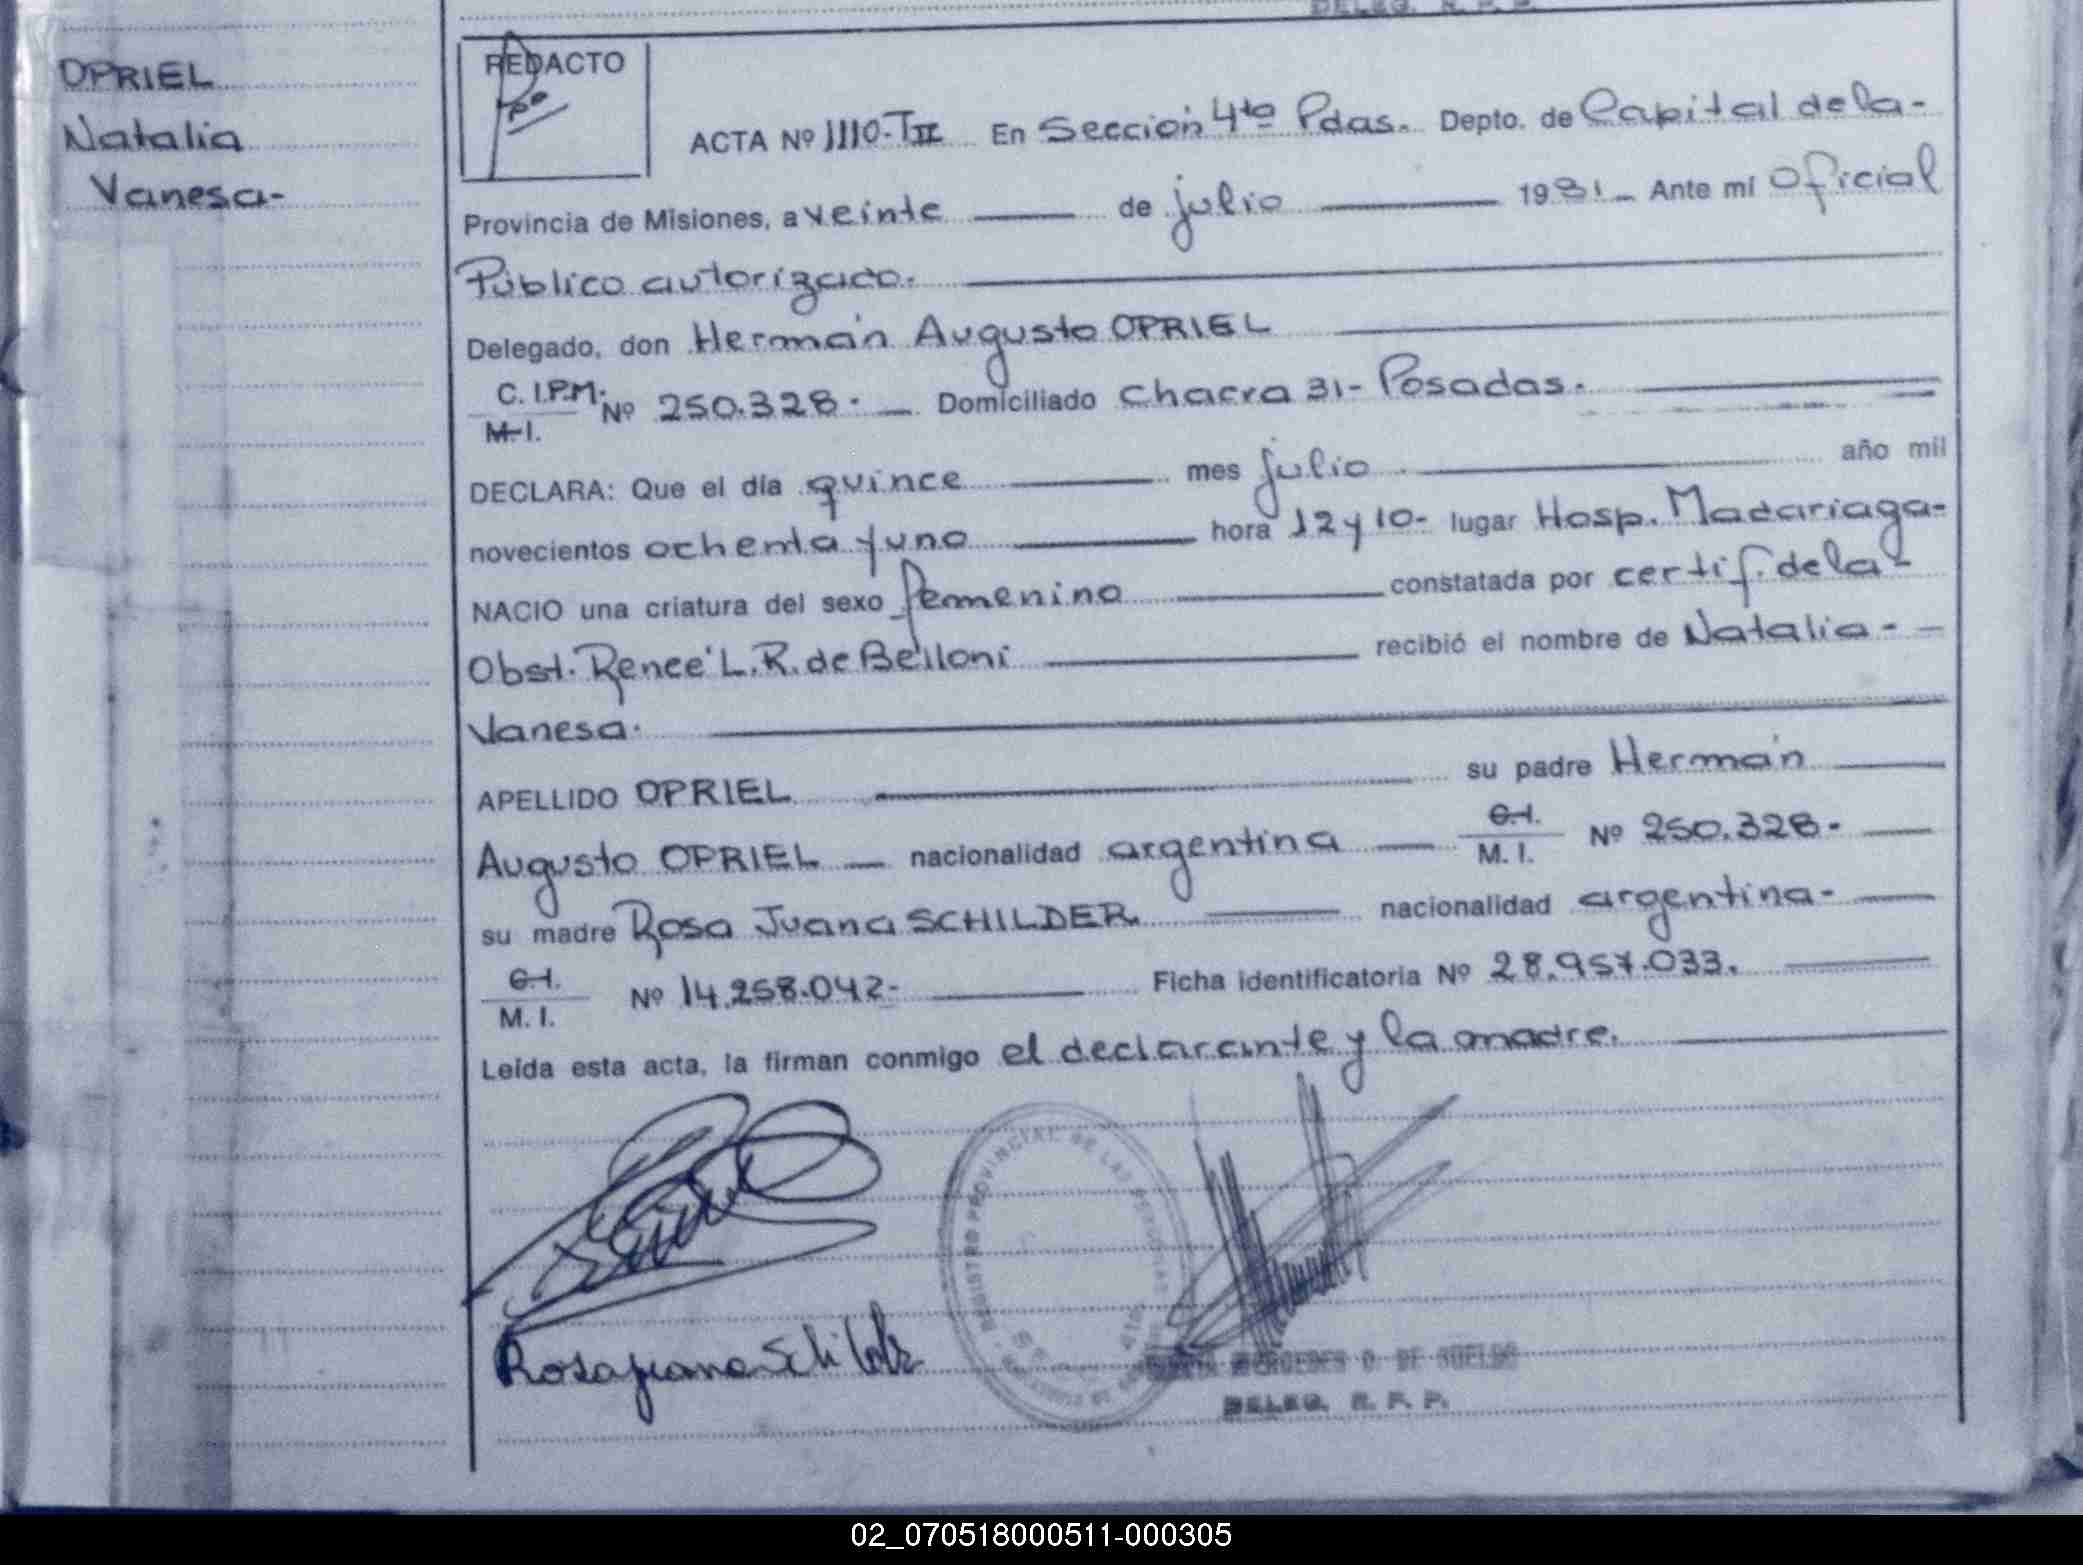 DELEG. R. P. P.
OPRIEL
Natalia
Vanesa-
REDACTO
ACTA Nº 1110-TII En Sección 4ta Pdas. Depto. de Capital de la-
Provincia de Misiones, a veinte de julio 1981- Ante mí Oficial
Público autorizado.
Delegado, don Hermán Augusto OPRIEL
C. I.P.M. Nº 250.328. Domiciliado Chacra 31- Posadas.
M. I.
DECLARA: Que el día quince mes julio año mil
novecientos ochenta y uno hora 12 y 10- lugar Hosp. Madariaga-
NACIO una criatura del sexo femenino constatada por certif. de la-
Obst. Reneé L. R. de Belloni recibió el nombre de Natalia-
Vanesa.
APELLIDO OPRIEL su padre Hermán
Augusto OPRIEL nacionalidad argentina C.I. M. I. Nº 250.328.
su madre Rosa Juana SCHILDER. nacionalidad argentina-
C.I. M. I. Nº 14.258.042- Ficha identificatoria Nº 28.957.033.
Leída esta acta, la firman conmigo el declarante y la madre.
REGISTRO PROVINCIAL DE LAS PERSONAS
Rosa Juana Schilder
MERCEDES D. DE SUELDO
DELEG. R. P. P.
02_070518000511-000305